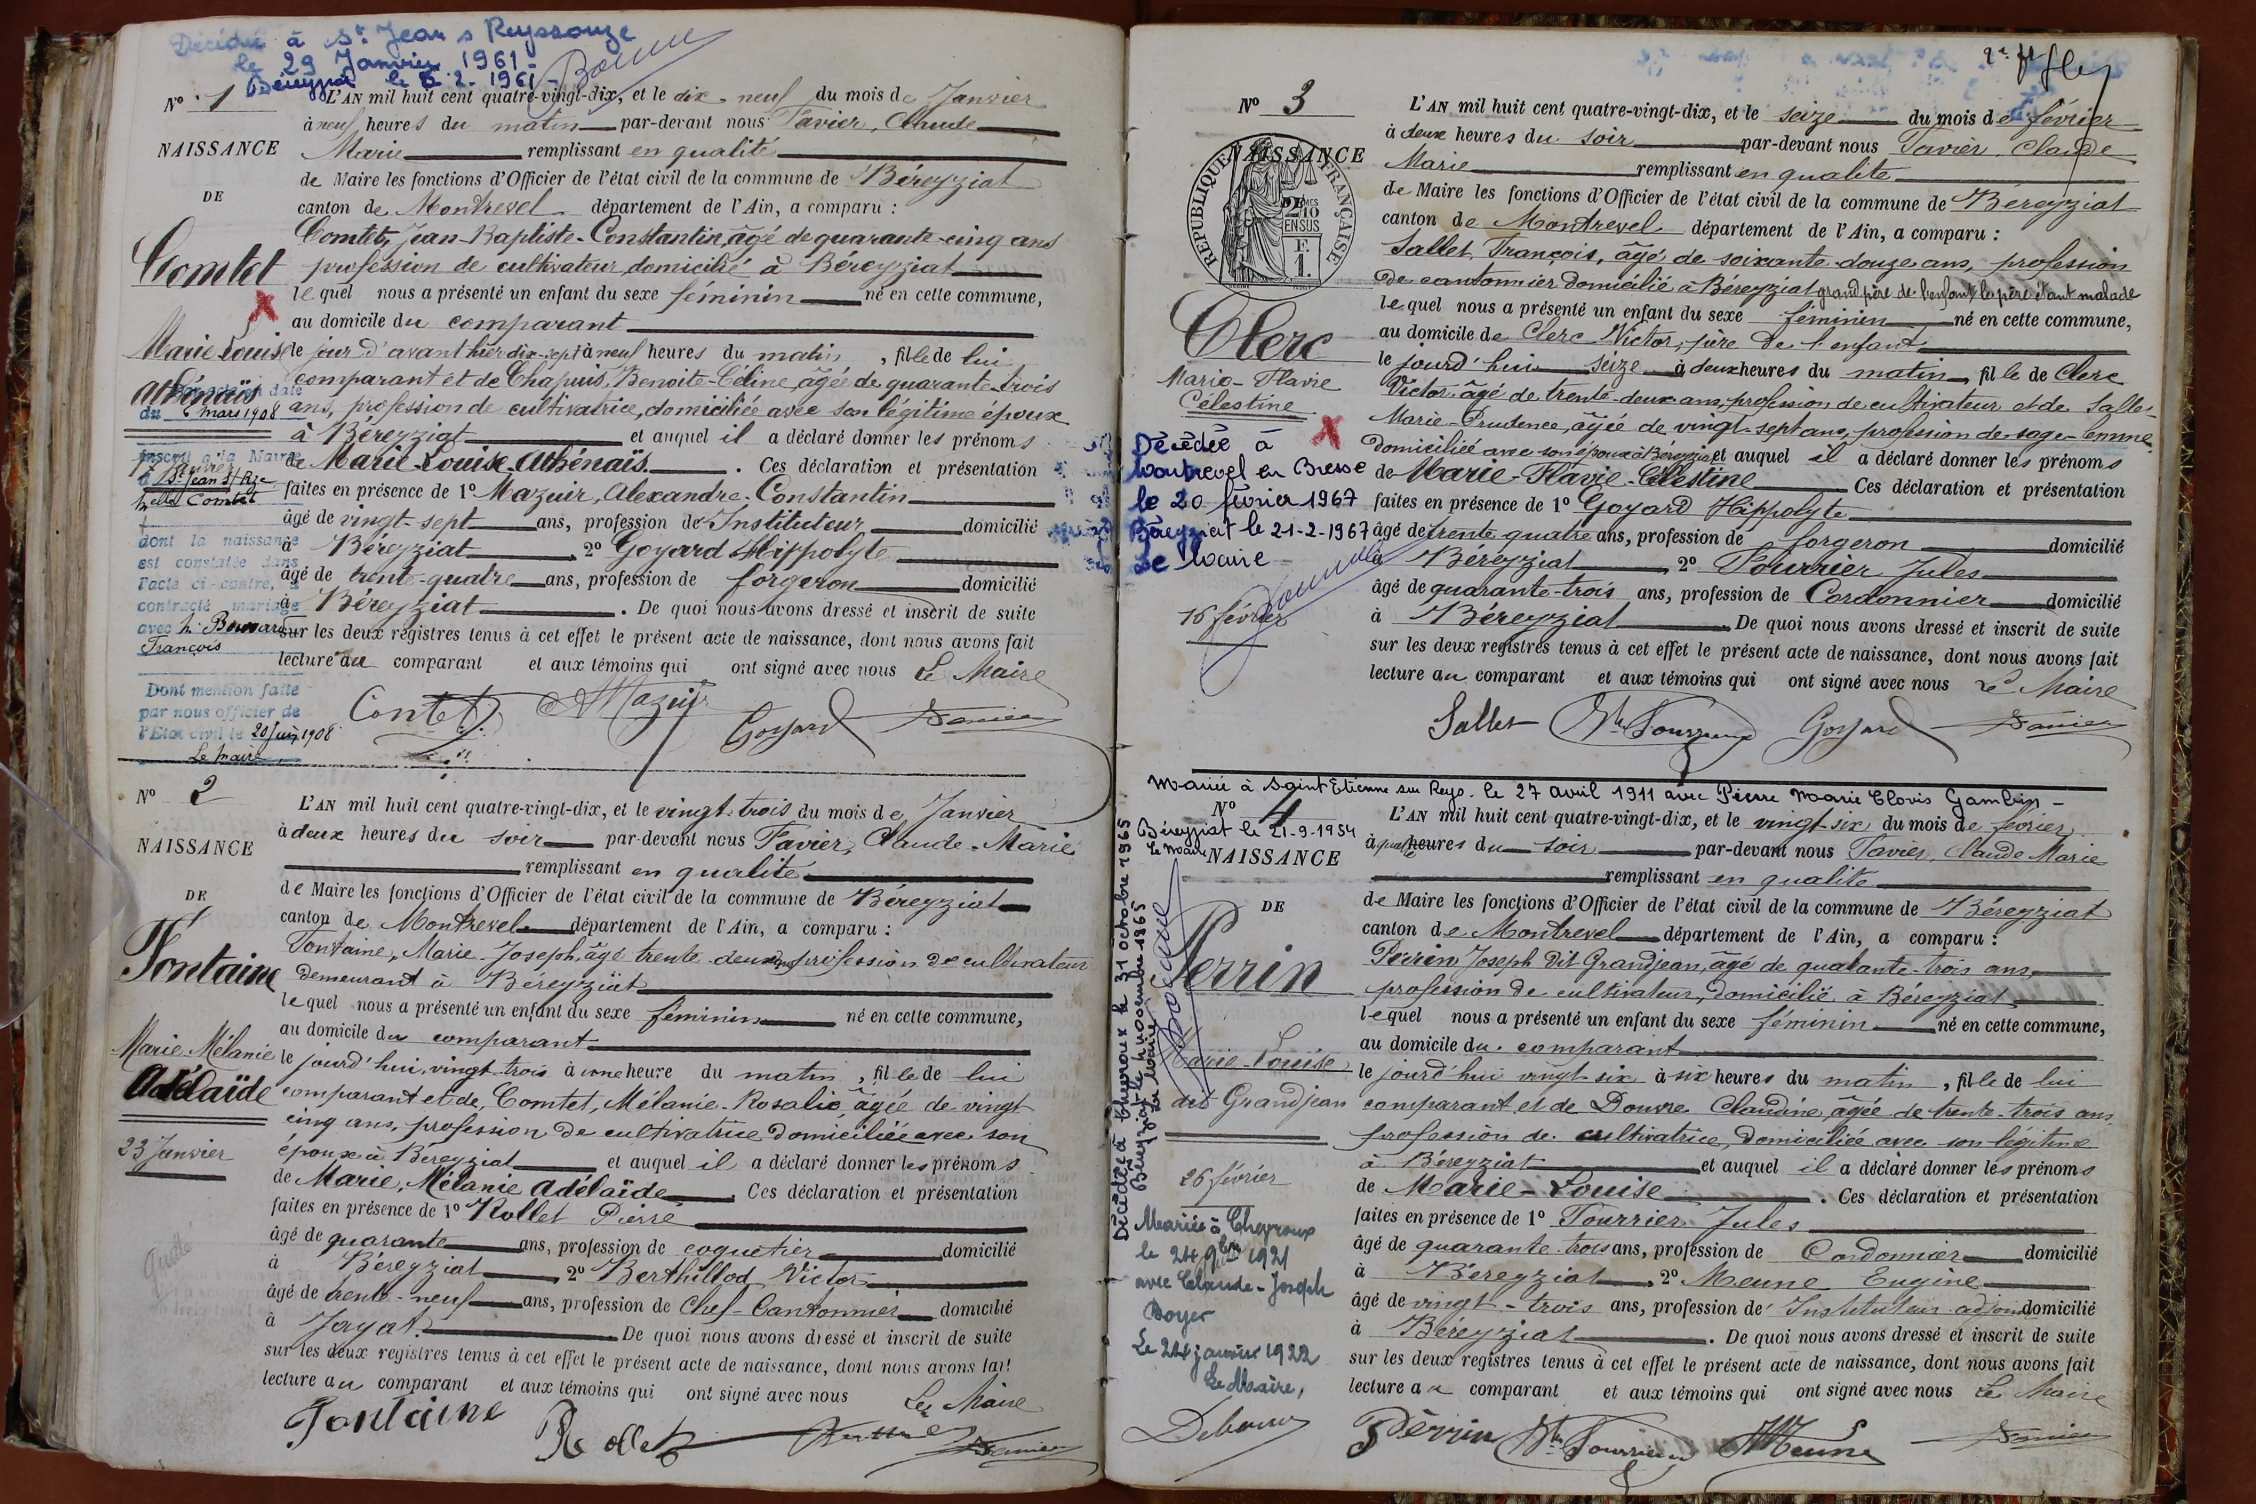 Décédée à St Jean s Reyssouze
le 29 Janvier 1961
Béreyziat le 2-1961
No 1
NAISSANCE
DE
Comtet
Marie Louise
Athénaïs
date
du mars 1908
inscrit à la Mairie
à St Jean s/ Rze
Comtet
dont la naissance
est constatée dans
l'acte ci-contre, a
contracté mariage
avec
François
Dont mention faite
par nous officier de
l'Etat civil le 20 Juin 1908
Le Maire
L'AN mil huit cent quatre-vingt-dix, et le dix-neuf du mois de Janvier
à neuf heures du matin par-devant nous Favier, Claude
Marie remplissant en qualité
de Maire les fonctions d'Officier de l'état civil de la commune de Béreyziat
canton de Montrevel département de l'Ain, a comparu :
Comtet, Jean-Baptiste-Constantin, âgé de quarante-cinq ans
profession de cultivateur, domicilié à Béreyziat
lequel nous a présenté un enfant du sexe féminin né en cette commune,
au domicile du comparant
le jour d'avant hier dix-sept à neuf heures du matin, fille de lui
comparant et de Chapuis, Benoite-Céline, âgée de quarante-trois
ans, profession de cultivatrice, domiciliée avec son légitime époux
à Béreyziat et auquel il a déclaré donner les prénoms
de Marie-Louise-Athénaïs. Ces déclaration et présentation
faites en présence de 1o Mazuir, Alexandre-Constantin
âgé de vingt-sept ans, profession de Instituteur domicilié
à Béreyziat 2o Goyard Hippolyte
âgé de trente-quatre ans, profession de forgeron domicilié
à Béreyziat. De quoi nous avons dressé et inscrit de suite
sur les deux registres tenus à cet effet le présent acte de naissance, dont nous avons fait
lecture au comparant et aux témoins qui ont signé avec nous Le Maire
Comtet Mazuir Goyard Favier
No 2
NAISSANCE
DE
Fontaine
Marie Mélanie
Adélaïde
23 Janvier
L'AN mil huit cent quatre-vingt-dix, et le vingt-trois du mois de Janvier
à deux heures du soir par-devant nous Favier, Claude-Marie
remplissant en qualité
de Maire les fonctions d'Officier de l'état civil de la commune de Béreyziat
canton de Montrevel département de l'Ain, a comparu :
Fontaine, Marie-Joseph, âgé trente-deux ans profession de cultivateur
demeurant à Béreyziat
lequel nous a présenté un enfant du sexe féminin né en cette commune,
au domicile du comparant
le jourd'hui, vingt-trois à une heure du matin, fille de lui
comparant et de, Comtet, Mélanie-Rosalie, âgée de vingt
cinq ans, profession de cultivatrice domiciliée avec son
époux à Béreyziat et auquel il a déclaré donner les prénoms
de Marie, Mélanie Adélaïde. Ces déclaration et présentation
faites en présence de 1o Rollet Pierre
âgé de quarante ans, profession de coquetier domicilié
à Béreyziat 2o Berthillod Victor
âgé de trente-neuf ans, profession de Chef-Cantonnier domicilié
à Jayat. De quoi nous avons dressé et inscrit de suite
sur les deux registres tenus à cet effet le présent acte de naissance, dont nous avons fait
lecture au comparant et aux témoins qui ont signé avec nous Le Maire
Fontaine Rollet Favier
No 3
NAISSANCE
RÉPUBLIQUE FRANÇAISE
2 10MES
EN SUS
F. 1.
Clerc
Marie-Flavie
Célestine
Décédée à
Montrevel en Bresse
le 20 février 1967
Béreyziat le 21-2-1967
Le Maire
16 février
L'AN mil huit cent quatre-vingt-dix, et le seize du mois de février
à deux heures du soir par-devant nous Favier Claude
Marie remplissant en qualité
de Maire les fonctions d'Officier de l'état civil de la commune de Béreyziat
canton de Montrevel département de l'Ain, a comparu :
Sallet, François, âgé de soixante-douze ans, profession
de cantonnier domicilié à Béreyziat grand père de l'enfant le père étant malade
lequel nous a présenté un enfant du sexe féminin né en cette commune,
au domicile de Clerc Victor, père de l'enfant
le jourd'hui seize à deux heures du matin, fille de Clerc
Victor âgé de trente-deux ans, profession de cultivateur et de Sallet
Marie-Prudence, âgée de vingt-sept ans, profession de sage-femme
Domiciliée avec son époux à Béreyziat et auquel il a déclaré donner les prénoms
de Marie-Flavie-Célestine Ces déclaration et présentation
faites en présence de 1o Goyard Hippolyte
âgé de trente quatre ans, profession de forgeron domicilié
à Béreyziat 2o Fourrier Jules
âgé de quarante-trois ans, profession de Cordonnier domicilié
à Béreyziat. De quoi nous avons dressé et inscrit de suite
sur les deux registres tenus à cet effet le présent acte de naissance, dont nous avons fait
lecture au comparant et aux témoins qui ont signé avec nous Le Maire
Sallet Fourrier Goyard Favier
Mariée à Saint Etienne sur Reys. le 27 avril 1911 avec Pierre Marie Clovis Gambin
No 4
Béreyziat le 21-9-1954
Le Maire
NAISSANCE
DE
Perrin
Marie-Louise
dit Grandjean
26 février
Décédée à Chevroux le 31 octobre 1965
Béreyziat le novembre 1965
Le Maire
Mariée à Chevroux
le 24 9bre 1921
avec Claude-Joseph
Boyer
Le 24 janvier 1922
Le Maire,
L'AN mil huit cent quatre-vingt-dix, et le vingt-six du mois de février
à quatre heures du soir par-devant nous Favier, Claude Marie
remplissant en qualité
de Maire les fonctions d'Officier de l'état civil de la commune de Béreyziat
canton de Montrevel département de l'Ain, a comparu :
Perrin Joseph dit Grandjean, âgé de quarante-trois ans,
profession de cultivateur, domicilié à Béreyziat
lequel nous a présenté un enfant du sexe féminin né en cette commune,
au domicile du comparant
le jourd'hui vingt-six à six heures du matin, fille de lui
comparant et de Douvre Claudine, âgée de trente-trois ans,
profession de cultivatrice, domiciliée avec son légitime
à Béreyziat et auquel il a déclaré donner les prénoms
de Marie-Louise. Ces déclaration et présentation
faites en présence de 1o Fourrier Jules
âgé de quarante-trois ans, profession de Cordonnier domicilié
à Béreyziat 2o Meune Eugène
âgé de vingt-trois ans, profession de Instituteur adjoint domicilié
à Béreyziat. De quoi nous avons dressé et inscrit de suite
sur les deux registres tenus à cet effet le présent acte de naissance, dont nous avons fait
lecture au comparant et aux témoins qui ont signé avec nous Le Maire
Perrin Fourrier Meune Favier